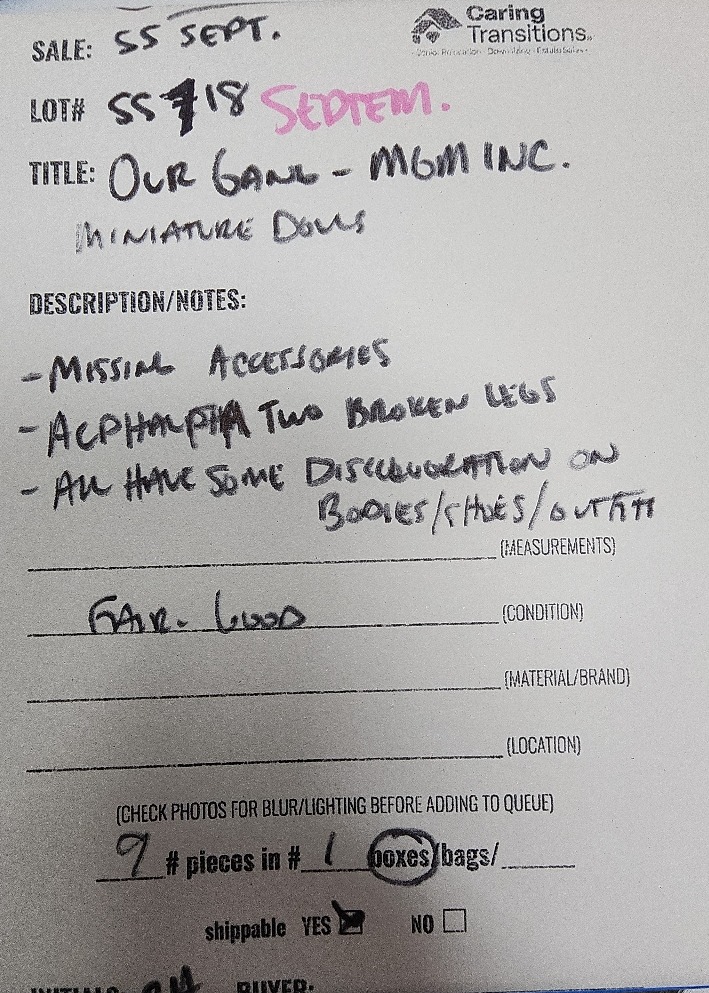 SALE: SS SEPT.
Caring
Transitions
LOT# SS 718 SEPTEM.
TITLE: OUR GANG - MGM INC.
MINIATURE DOLLS
DESCRIPTION/NOTES:
- MISSING ACCESSORIES
- ALPHALPHA TWO BROKEN LEGS
- ALL HAVE SOME DISCOLOURATION ON
BODIES/SHOES/OUTFITS
(MEASUREMENTS)
FAIR - GOOD (CONDITION)
(MATERIAL/BRAND)
(LOCATION)
(CHECK PHOTOS FOR BLUR/LIGHTING BEFORE ADDING TO QUEUE)
9 # pieces in # 1 boxes/bags/
shippable YES NO
BUYER: